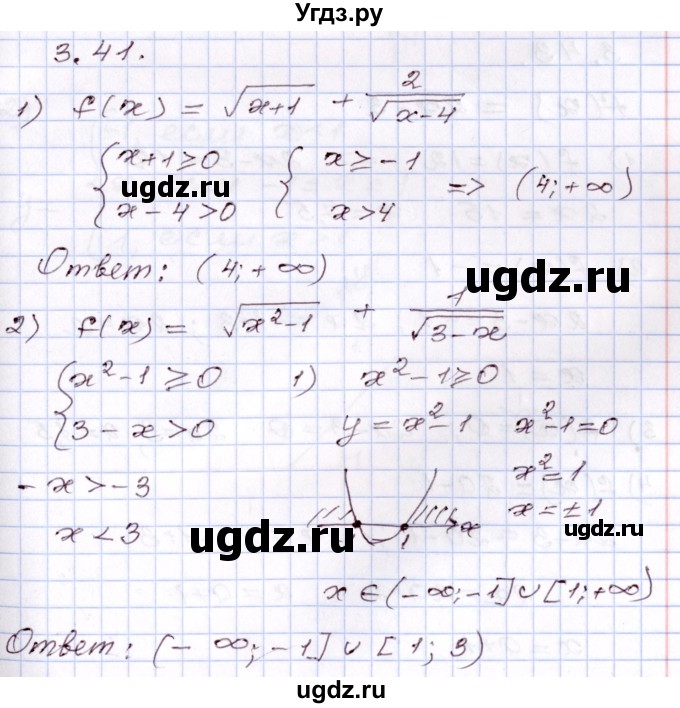 Угдз.ру
3.41.
1) f(x) = √(x+1) + 2/√(x-4)
{x+1≥0 {x≥-1 => (4;+∞)
{x-4>0 {x>4
ugdz.ru ugdz.ru
Ответ: (4;+∞)
ugdz.ru
2) f(x) = √(x²-1) + 1/√(3-x)
{x²-1≥0 1) x²-1≥0
{3-x>0 y=x²-1 x²-1=0
-x>-3 x²=1
x<3 x=±1
ugdz.ru ugdz.ru
1 x
x∈(-∞;-1]∪[1;+∞)
Ответ: (-∞;-1]∪[1;3)
ugdz.ru